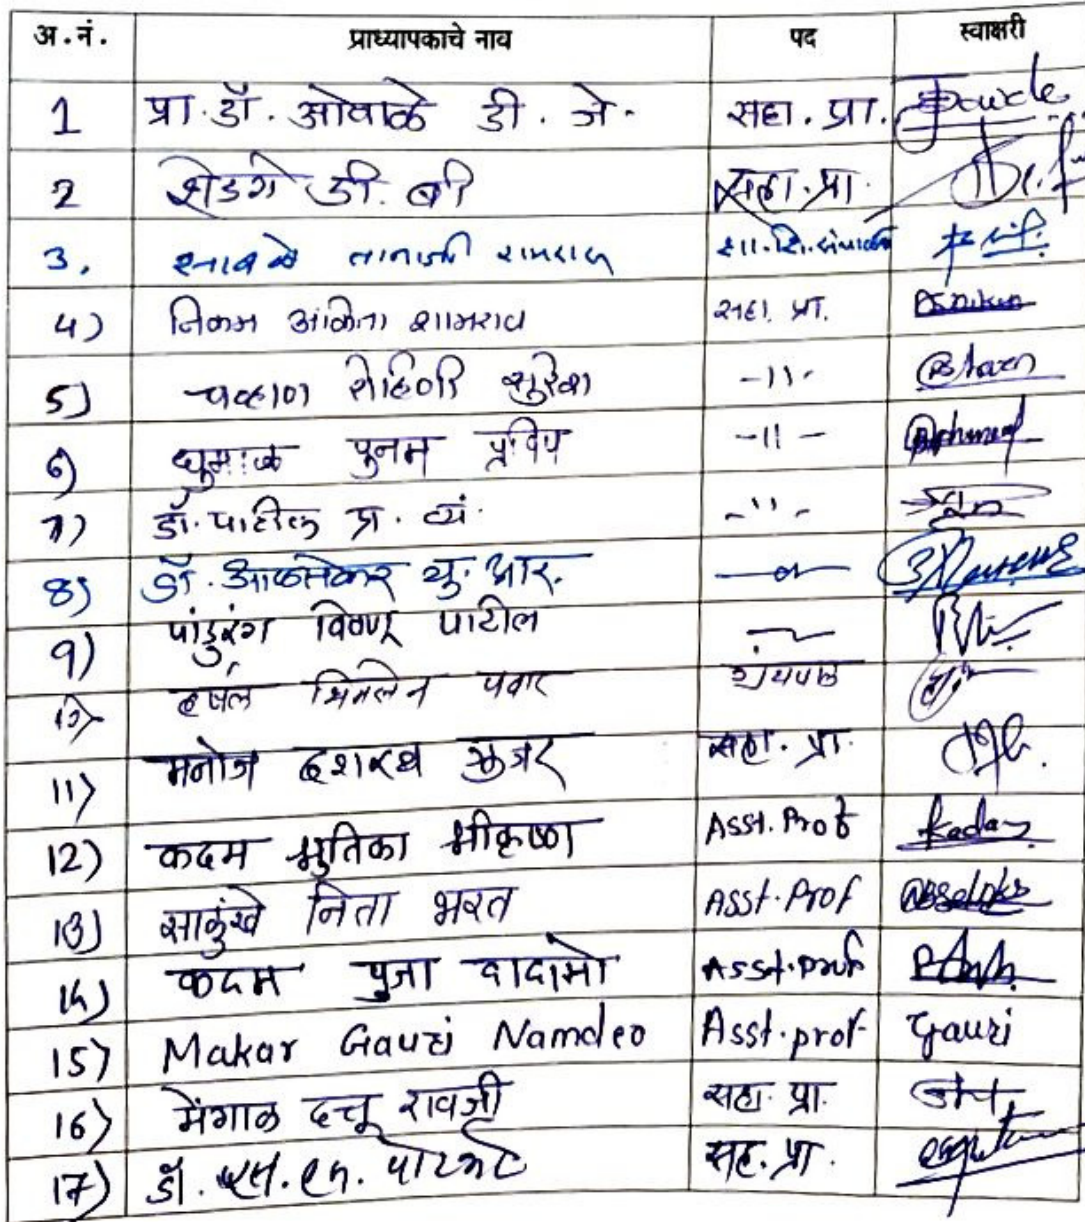 अ.नं. प्राध्यापकाचे नाव पद स्वाक्षरी
1 प्रा.डॉ. ओवाळे डी. जे. सहा. प्रा.
2 शेडगे डी. बी सहा. प्रा.
3. तानाजी रामराव
4) निकम अंकिता शामराव सहा. प्रा.
5) चव्हाण रोहिणी सुरेश -11-
6) घुमाळ पुनम प्रदिप -11-
7) डॉ. पाटील प्र. व्यं. -11-
8) डॉ. आळतेकर यु. आर.
9) पांडुरंग विष्णू पाटील
10) हर्षल भिमसेन पवार ग्रंथपाल
11) मनोज दशरथ गुजर सहा. प्रा.
12) कदम श्रुतिका श्रीकृष्ण Asst. Prof Kadam
13) साळुंखे निता भरत Asst. Prof
14) कदम पुजा दादासो Asst. prof
15) Makar Gauri Namdeo Asst. prof Gauri
16) मेंगाळ दत्तू रावजी सहा. प्रा.
17) डॉ. एस. एन. सह. प्रा.